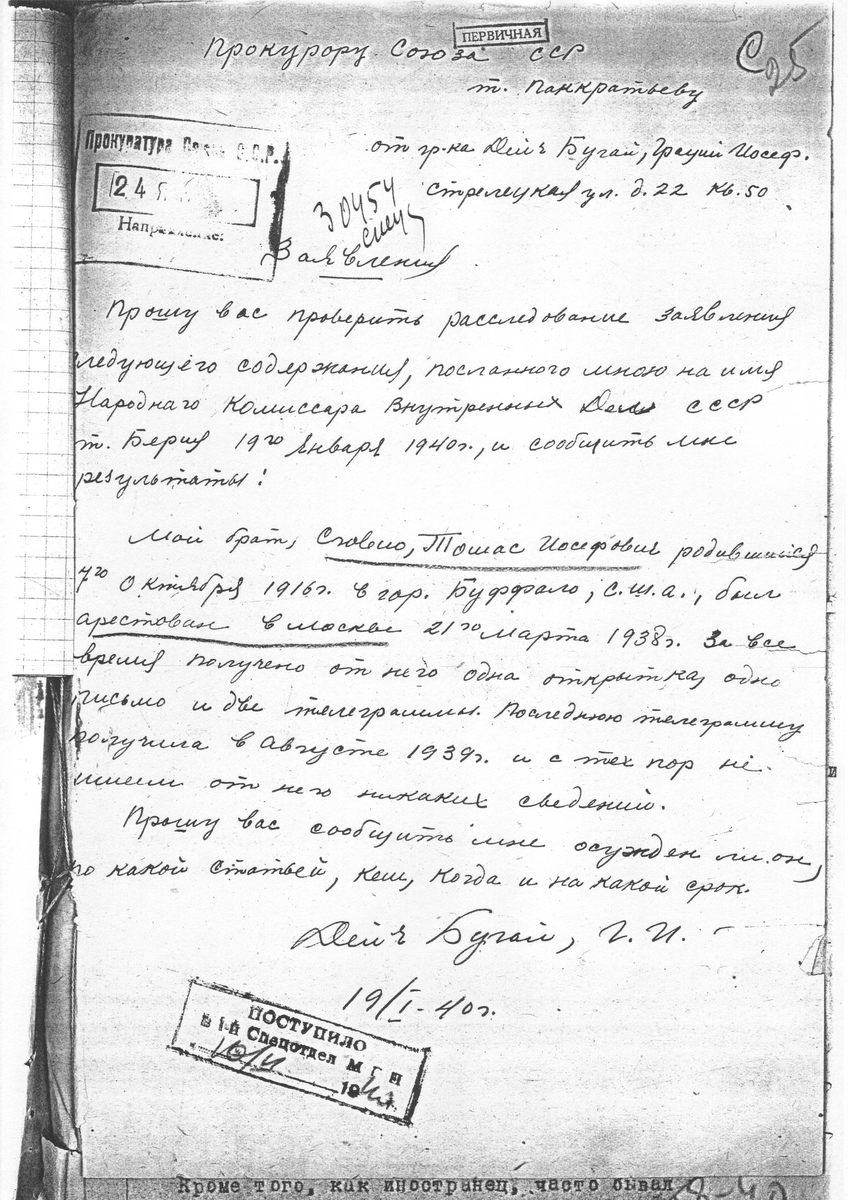 ПЕРВИЧНАЯ
Прокурору Союза ССР
т. Панкратьеву
С 25
от гр-ка Дейч Бугай, Граций Иосеф.
Стрелецкая ул. д. 22 кв. 50
Прокуратура С.С.Р.
24
Направление:
30454
спец
Заявления
Прошу вас проверить расследование заявления
следующего содержания, посланного мною на имя
Народнаго Комиссара Внутренных Дел СССР
т. Берия 19го Января 1940г., и сообщить мне
результаты!
Мой брат, Сговио, Томас Иосефович родившийся
7го Октября 1916г. в гор. Буффало, С.Ш.А., был
арестован в Москве 21го Марта 1938г. За все
время получено от него одна открытка, одно
письмо и две телеграммы. Последнюю телеграмму
получила в Августе 1939г. и с тех пор не
имеем от него никаких сведений.
Прошу вас сообщить мне осужден ли он,
по какой статьей, кем, когда и на какой срок.
Дейч Бугай, Г. И.
19/I-40г.
ПОСТУПИЛО
В 1й Спецотдел
19
Кроме того, как иностранец, часто бывал